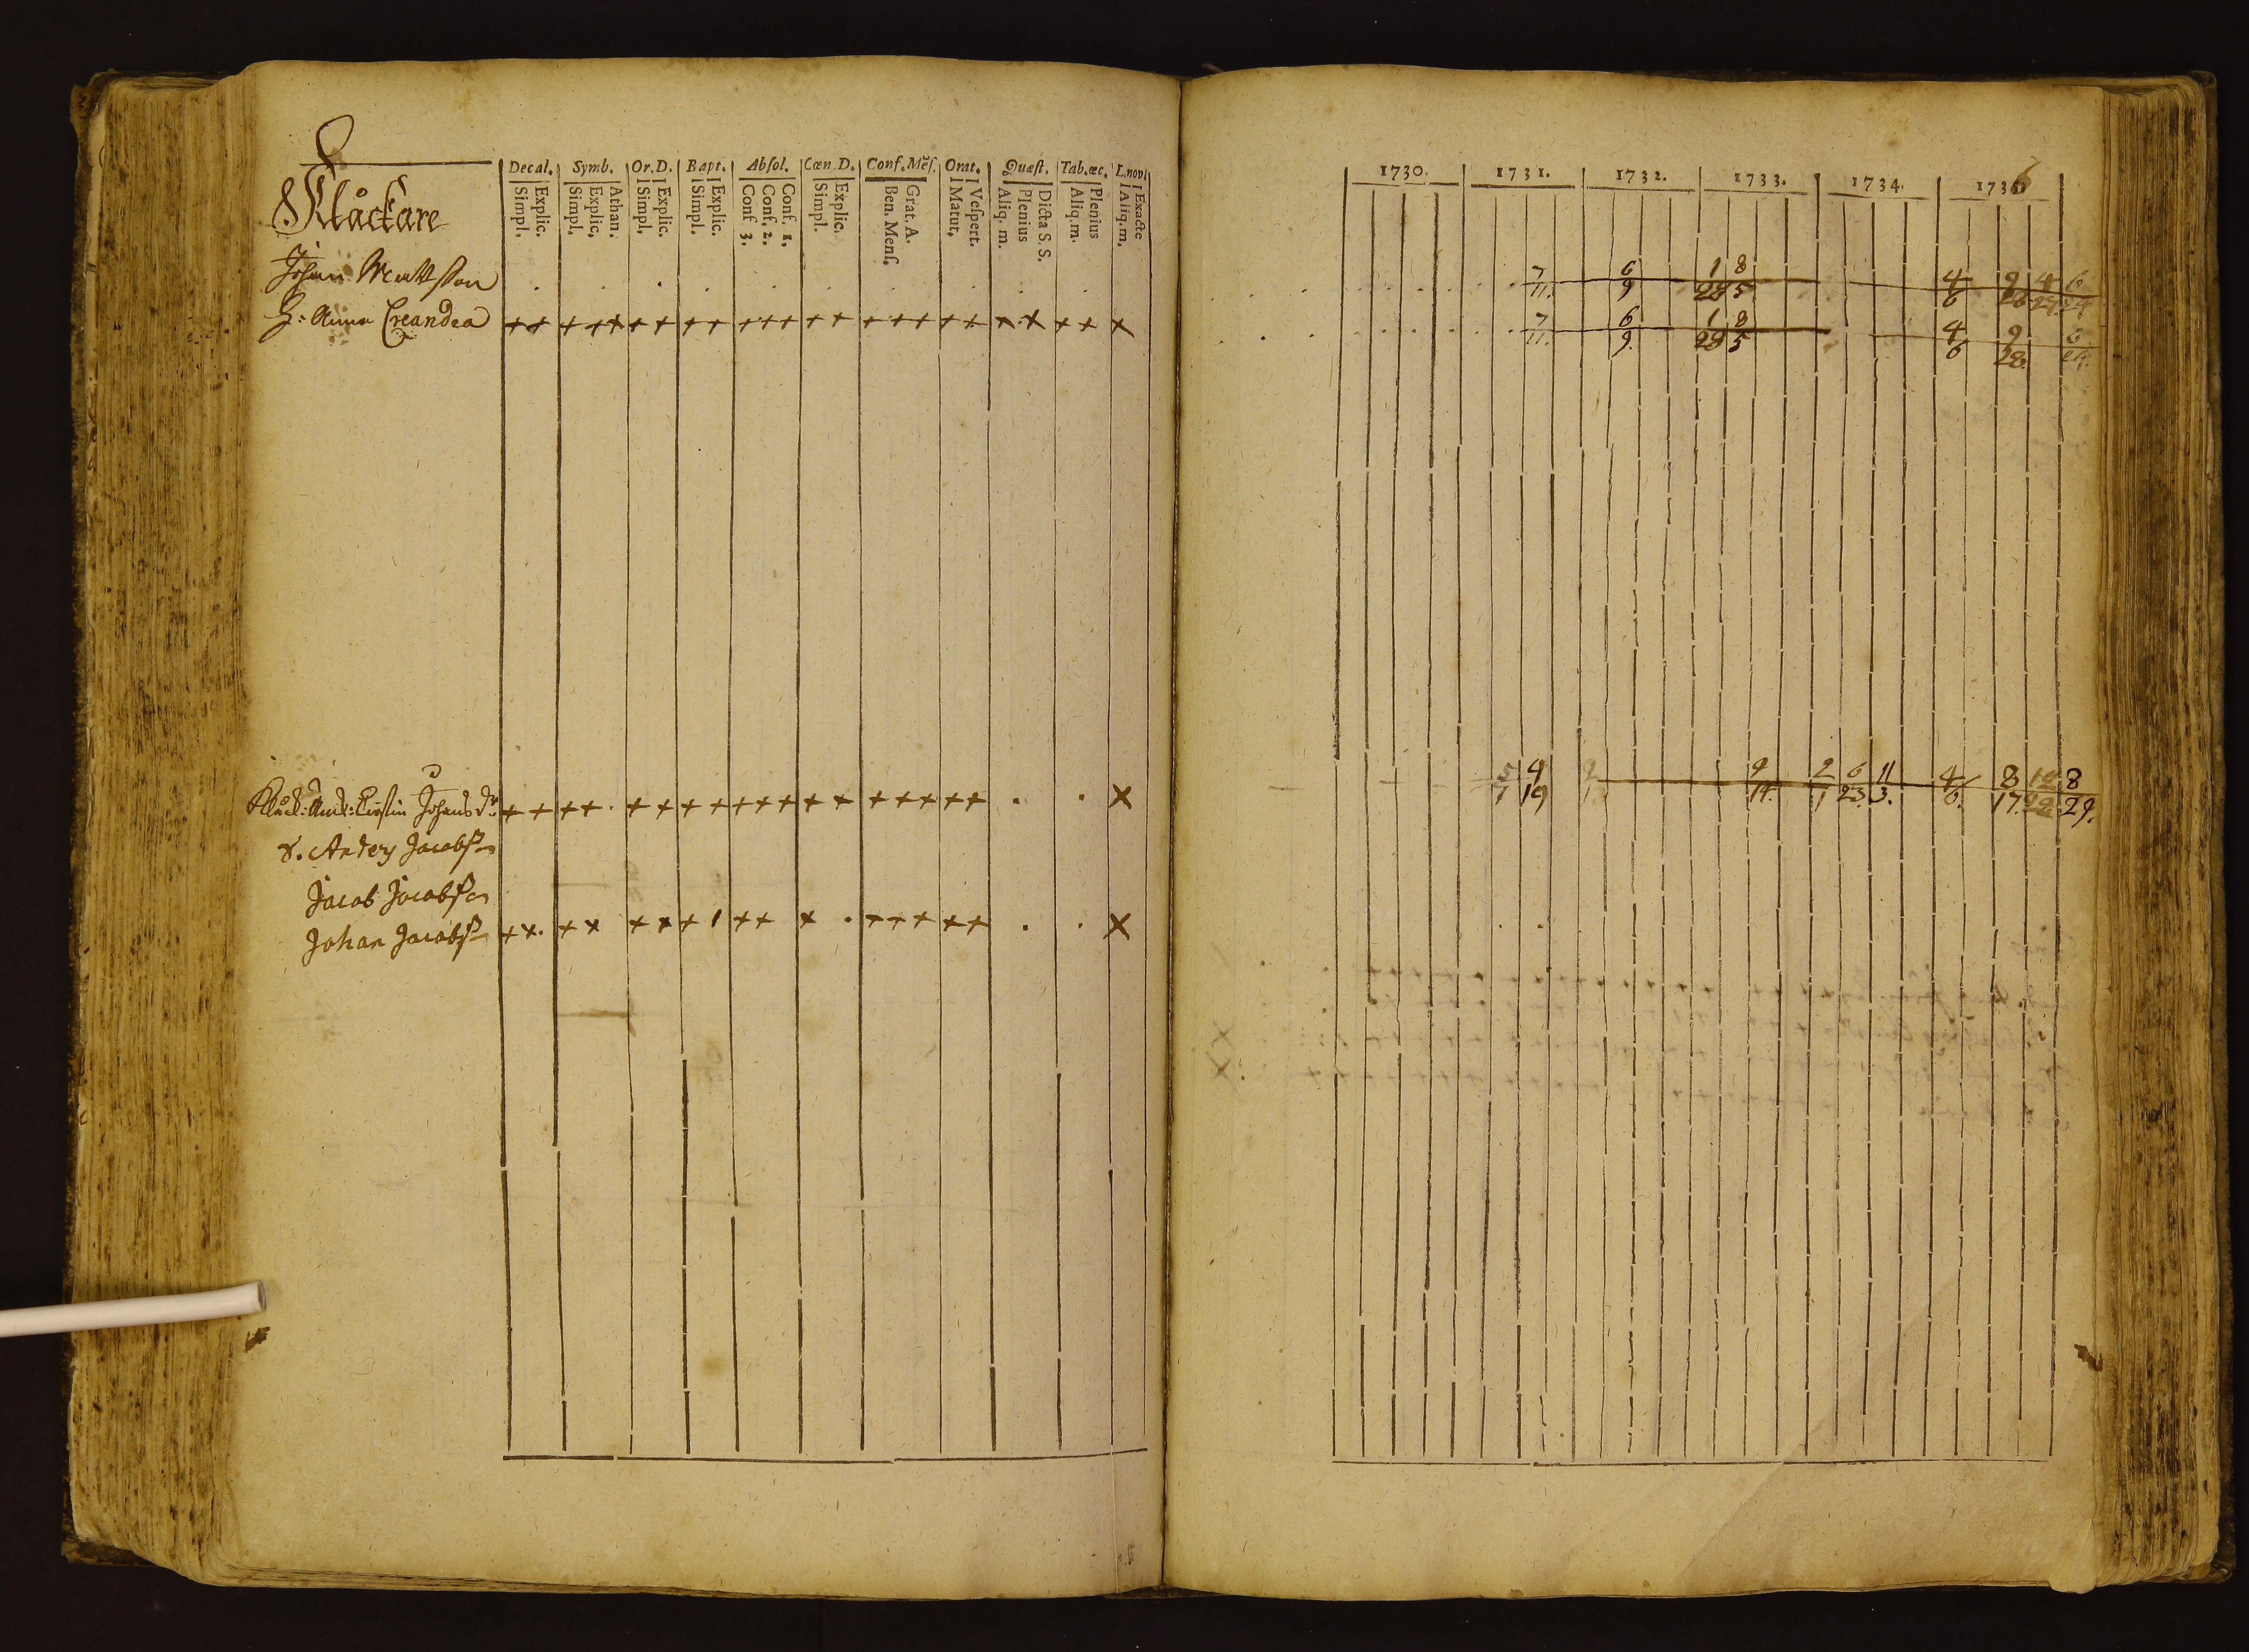 Klåckare
Decal. Symb. Or.D. Bapt. Absol. Cœn.D. Conf.Mes. Orat. Quæst. Tab.œc. L.novi
Simpl. Explic. Simpl. Explic. Athan. Simpl. Explic. Simpl. Explic. Conf. 3. Conf. 2. Conf. 1. Simpl. Explic. Ben. Mens. Grat. A. Matut. Vespert. Aliq. m. Plenius Dicta S. S. Aliq. m. Plenius Aliq. m. Exacte
Johan Mattsson
H: Anna Creandra
Kluck: Änck: Kirstin Johans dr
S. Anders Jacobsson
Jacob Jacobsson
Johan Jacobsson
1730. 1731. 1732. 1733. 1734. 1736
7/11. 6/9 1/28 8/5 4/6 9/28 4/29 6/24
7/11. 6/9. 1/28 8/5 4/6 9/28.
5/1 4/19 9/14. 2/1 6/23. 11/3. 4/6. 8/17. 8/29.